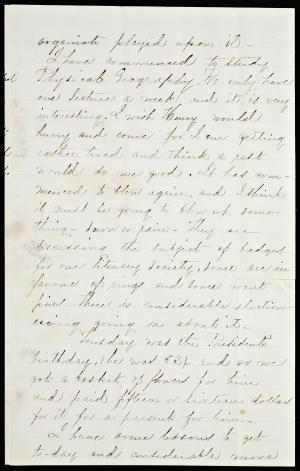 organists played upon it –
I have commenced to study
Physical Geography. We only have
one lecture a week and it is very
interesting. I wish Henry would
hurry and come for I am getting
rather tired and think a rest
would do me good. It has com-
menced to blow again, and I think
it must be going to blow up some-
thing – snow or rain – They are
discussing the subject of badges
for our Literary Society, some are in
favor of rings and some want
pins. There is considerable election-
eering going on about it.
Tuesday was the Presidents
birthday, he was 52 and so we
got a basket of flowers for him
and paid fifteen or sixteen dollars
for it for a present for him –
I have some lessons to get
to-day and considerable more